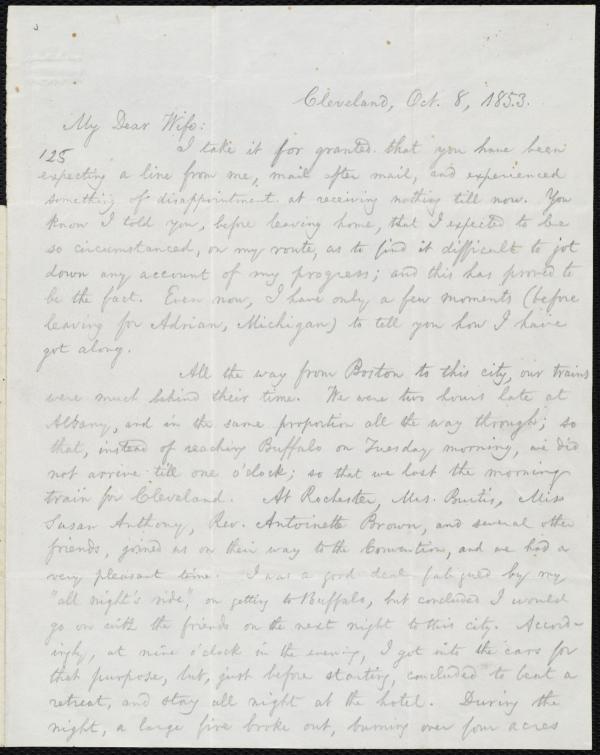 Cleveland, Oct. 8, 1853.
My Dear Wife:
125
I take it for granted that you have been
expecting a line from me, mail after mail, and experienced
something of disappointment at receiving nothing till now. You
know I told you, before leaving home, that I expected to be
so circumstanced, on my route, as to find it difficult to jot
down any account of my progress; and this has proved to
be the fact. Even now, I have only a few moments (before
leaving for Adrian, Michigan) to tell you how I have
got along.
All the way from Boston to this city, our trains
were much behind their time. We were two hours late at
Albany, and in the same proportion all the way through; so
that, instead of reaching Buffalo on Tuesday morning, we did
not arrive till one o'clock; so that we lost the morning
train for Cleveland. At Rochester, Mrs. Burtis, Miss
Susan Anthony, Rev. Antoinette Brown, and several other
friends, joined us on their way to the Convention, and we had a
very pleasant time. I was a good deal fatigued by my
"all night's ride," on getting to Buffalo, but concluded I would
go on with the friends on the next night to this city. Accord-
ingly, at nine o'clock in the evening, I got into the cars for
that purpose, but, just before starting, concluded to beat a
retreat, and stay all night at the hotel. During the
night, a large fire broke out, burning over four acres